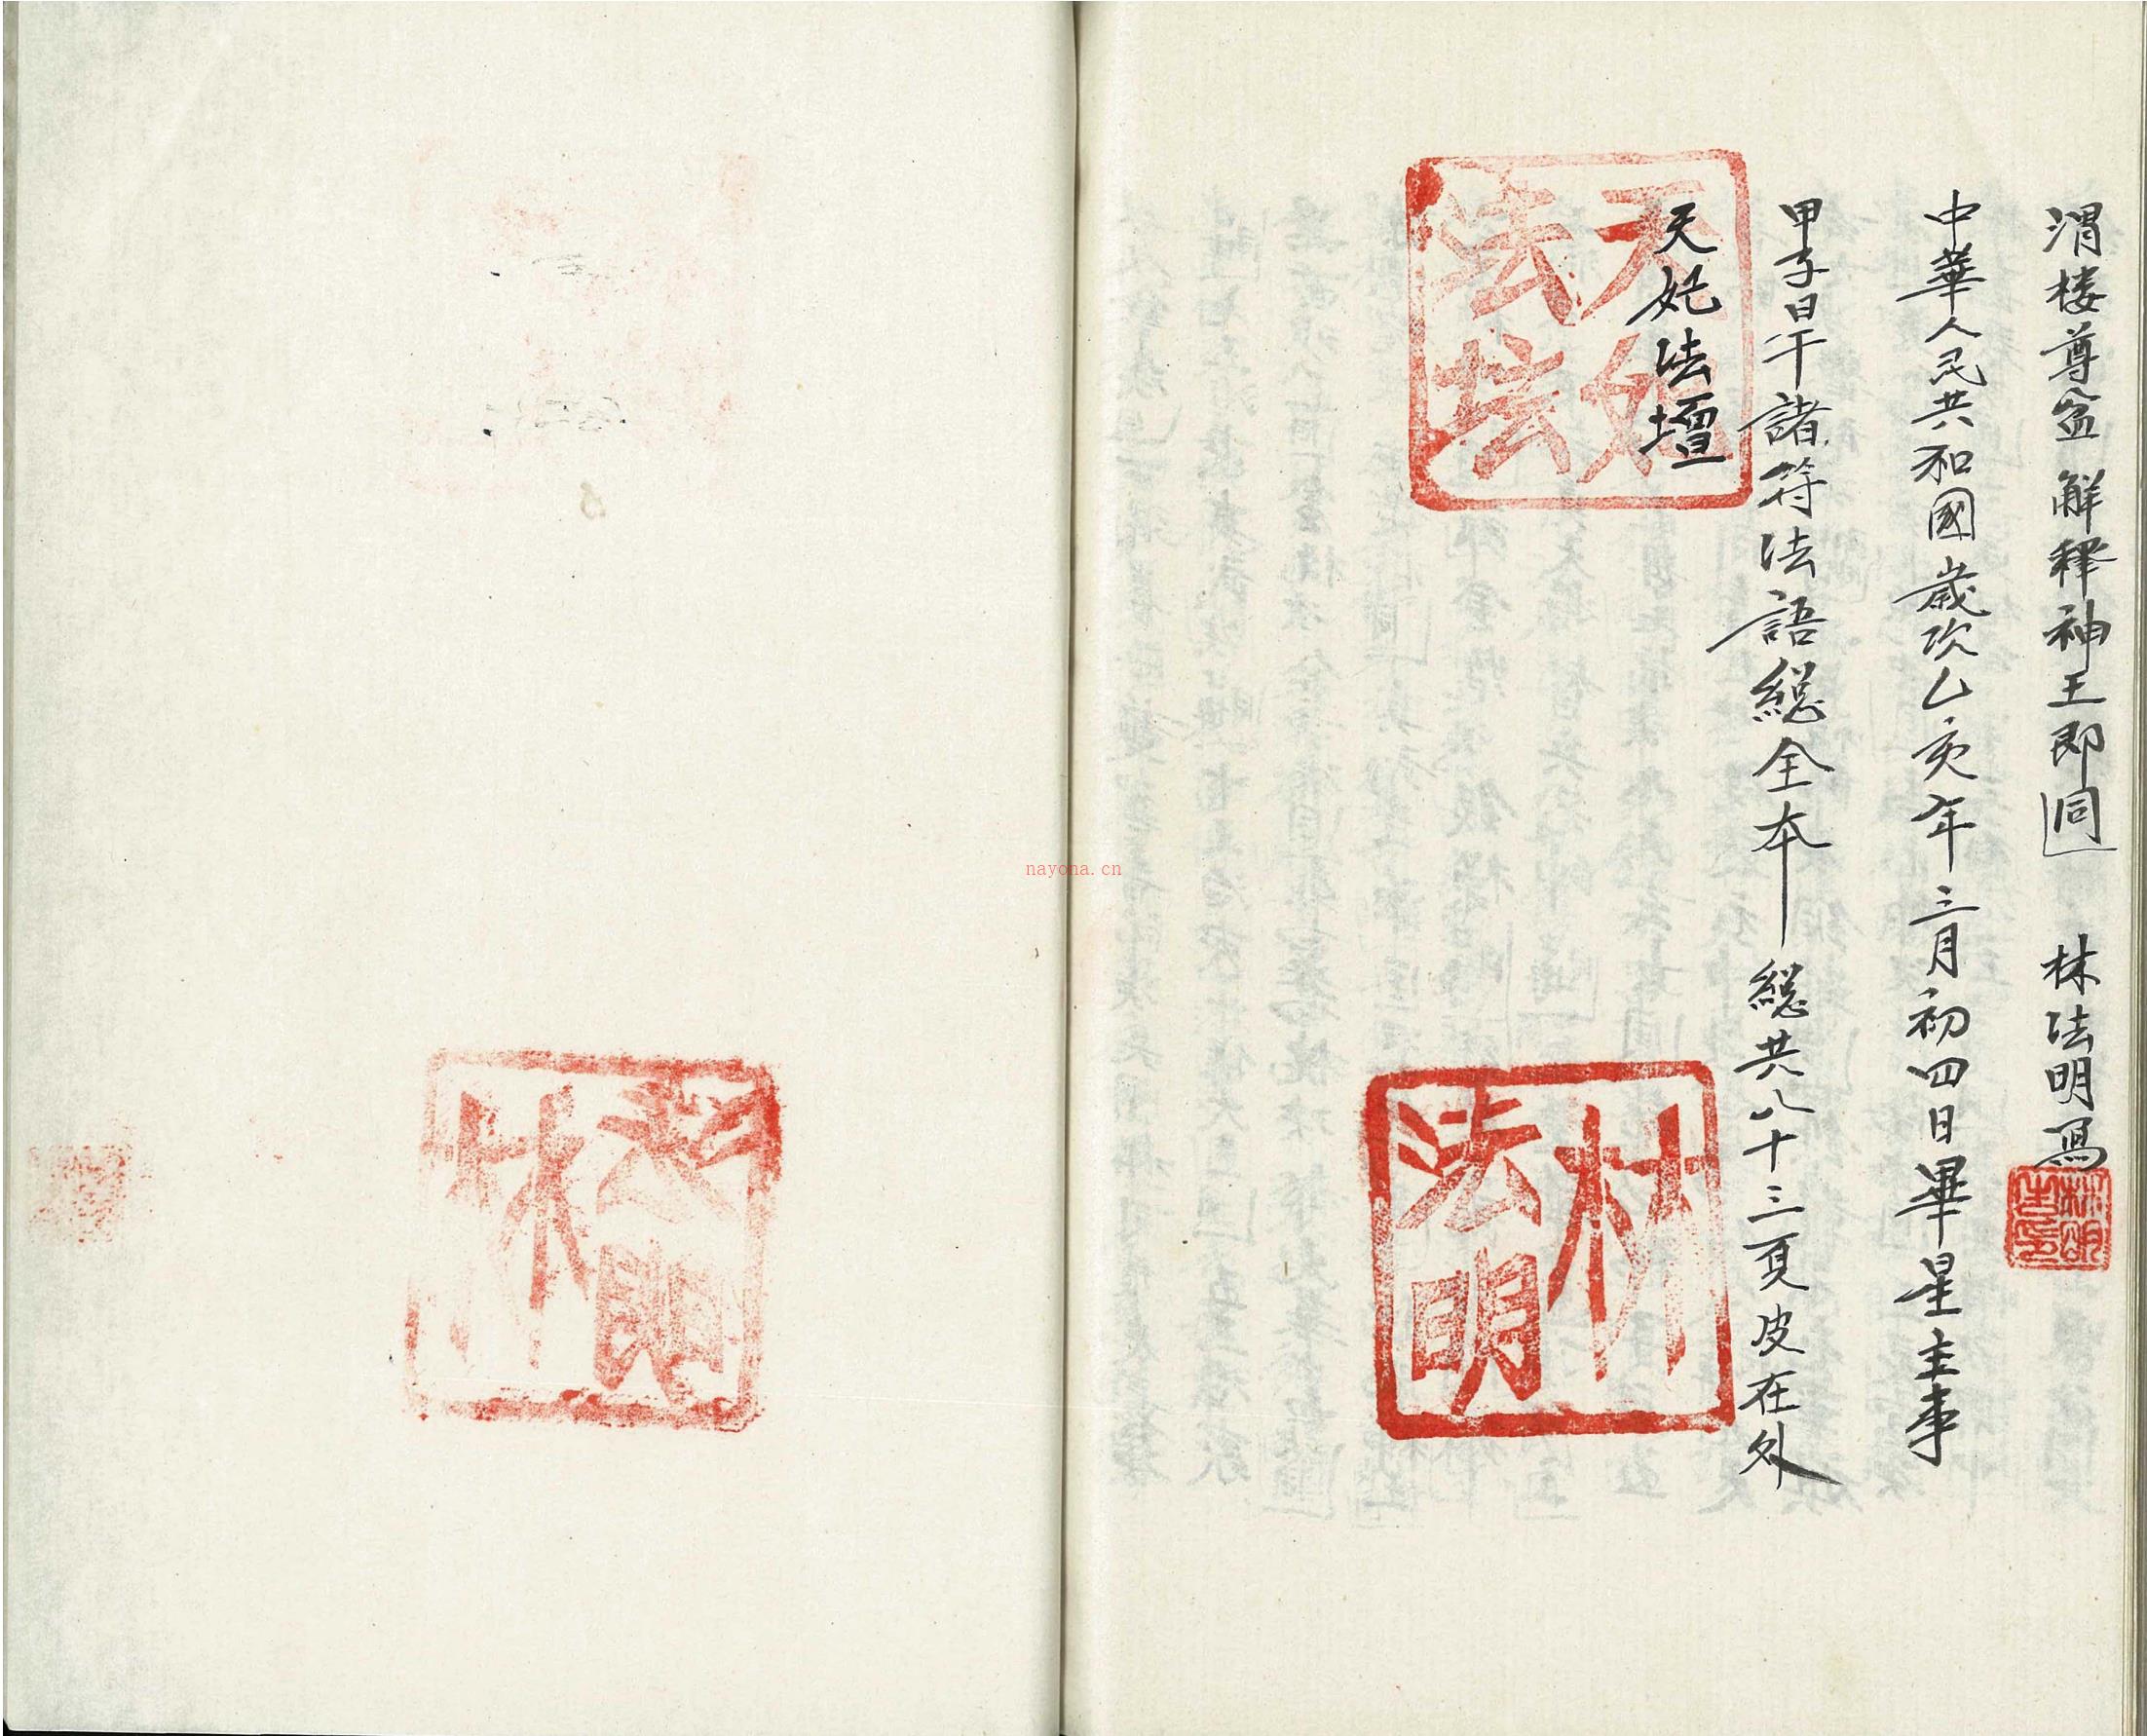 渭楼尊盆解释神王即同 林法明写
中華人民共和國歲次乙亥年三月初四日畢星主事
甲子日干諸符法語總全本 總共八十三頁皮在外
天妃法壇
天妃法坛
林法明
nayona.cn